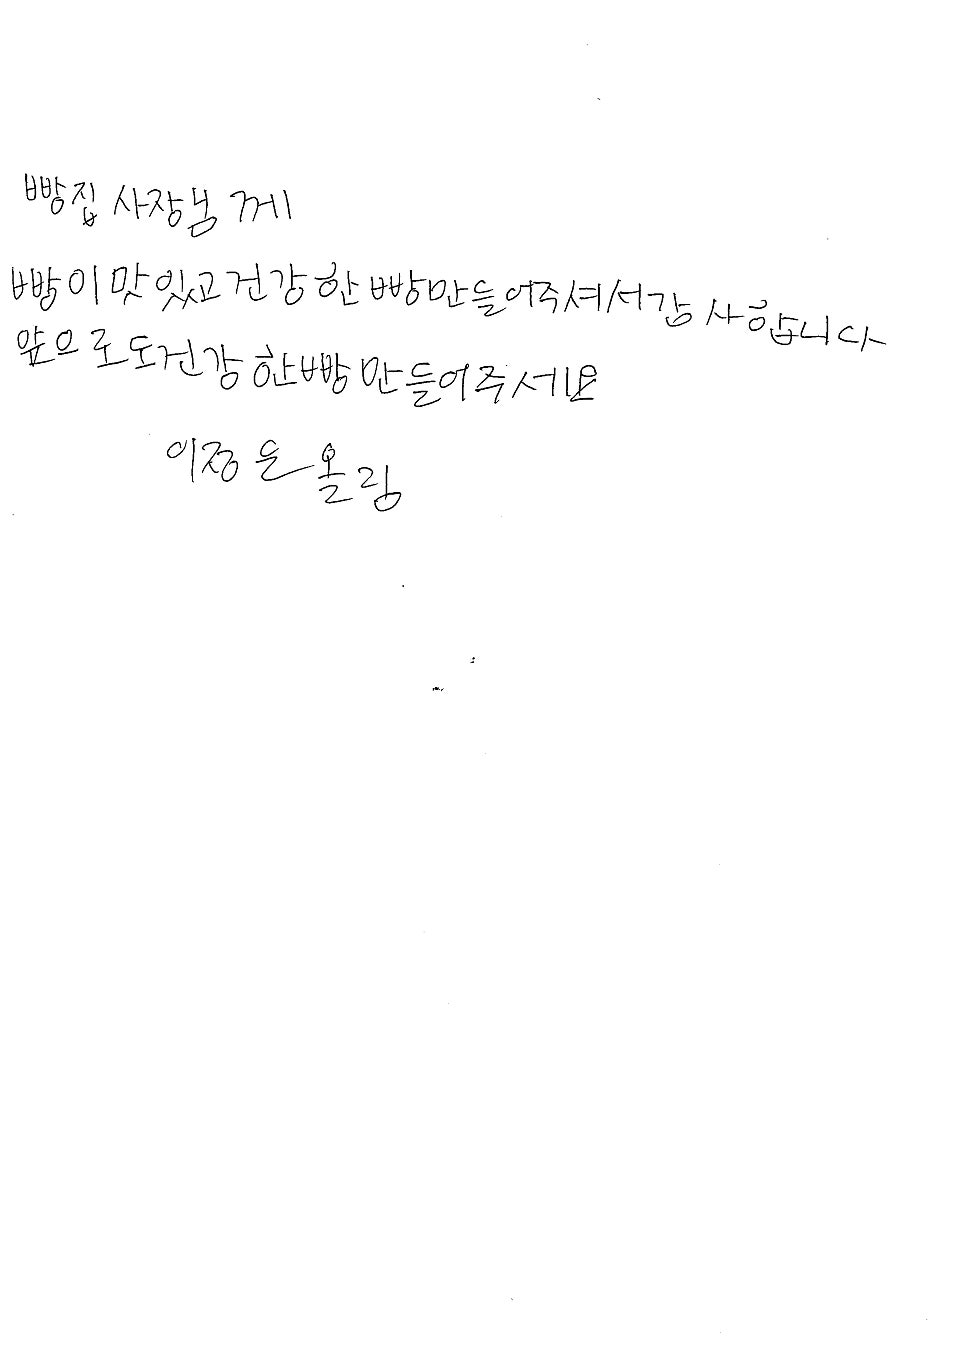 빵집 사장님께
빵이 맛있고 건강한 빵 만들어주셔서 감사합니다
앞으로도 건강한 빵 만들어주세요
이정은 올림